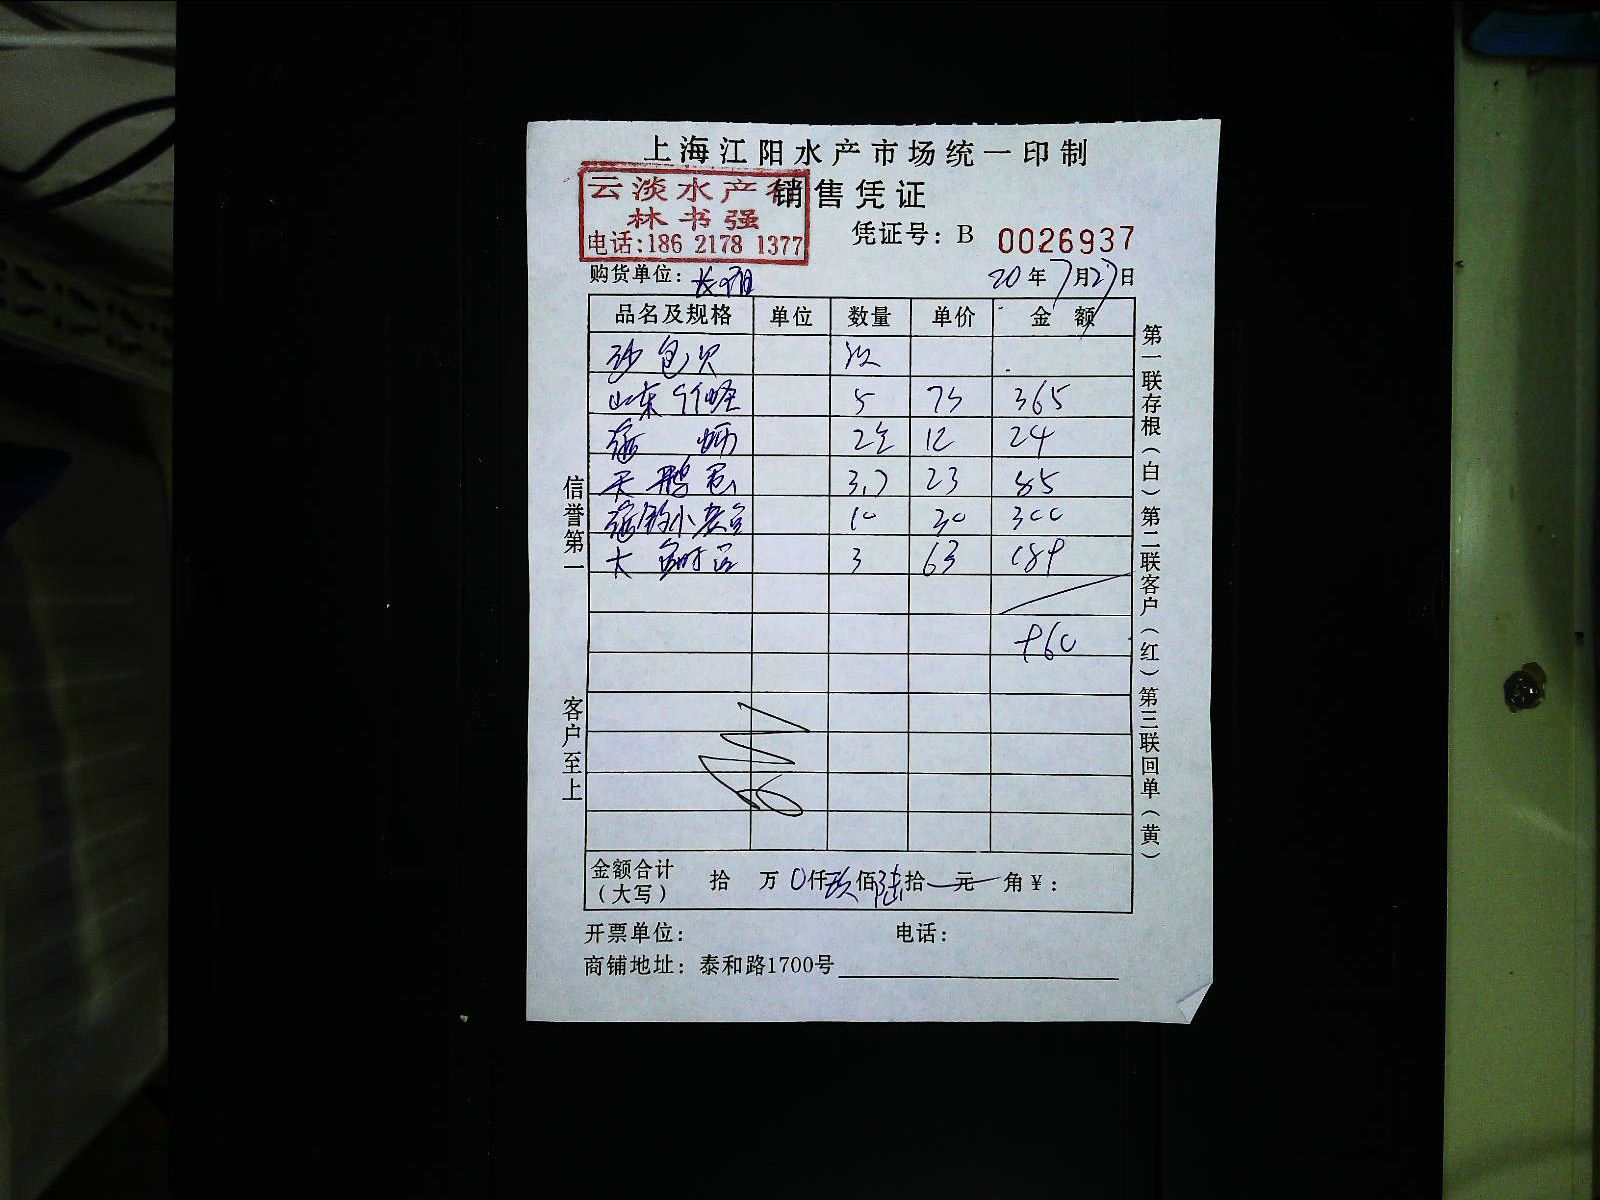 上海江阳水产市场统一印制
云淡水产
销售凭证
林书强
凭证号：B 0026937
电话:186 2178 1377
购货单位：
20年7月27日
品名及规格 单位 数量 单价 金额
沙包 次
山东 5 73 365
海 蛎 2 12 24
天鹅蛋 3.7 23 85
小 10 30 300
大 3 63 189
960
金额合计（大写） 拾 万 0仟玖佰陆拾 元 角¥：
开票单位： 电话：
商铺地址：泰和路1700号
信誉第一
客户至上
第一联存根（白）第二联客户（红）第三联回单（黄）